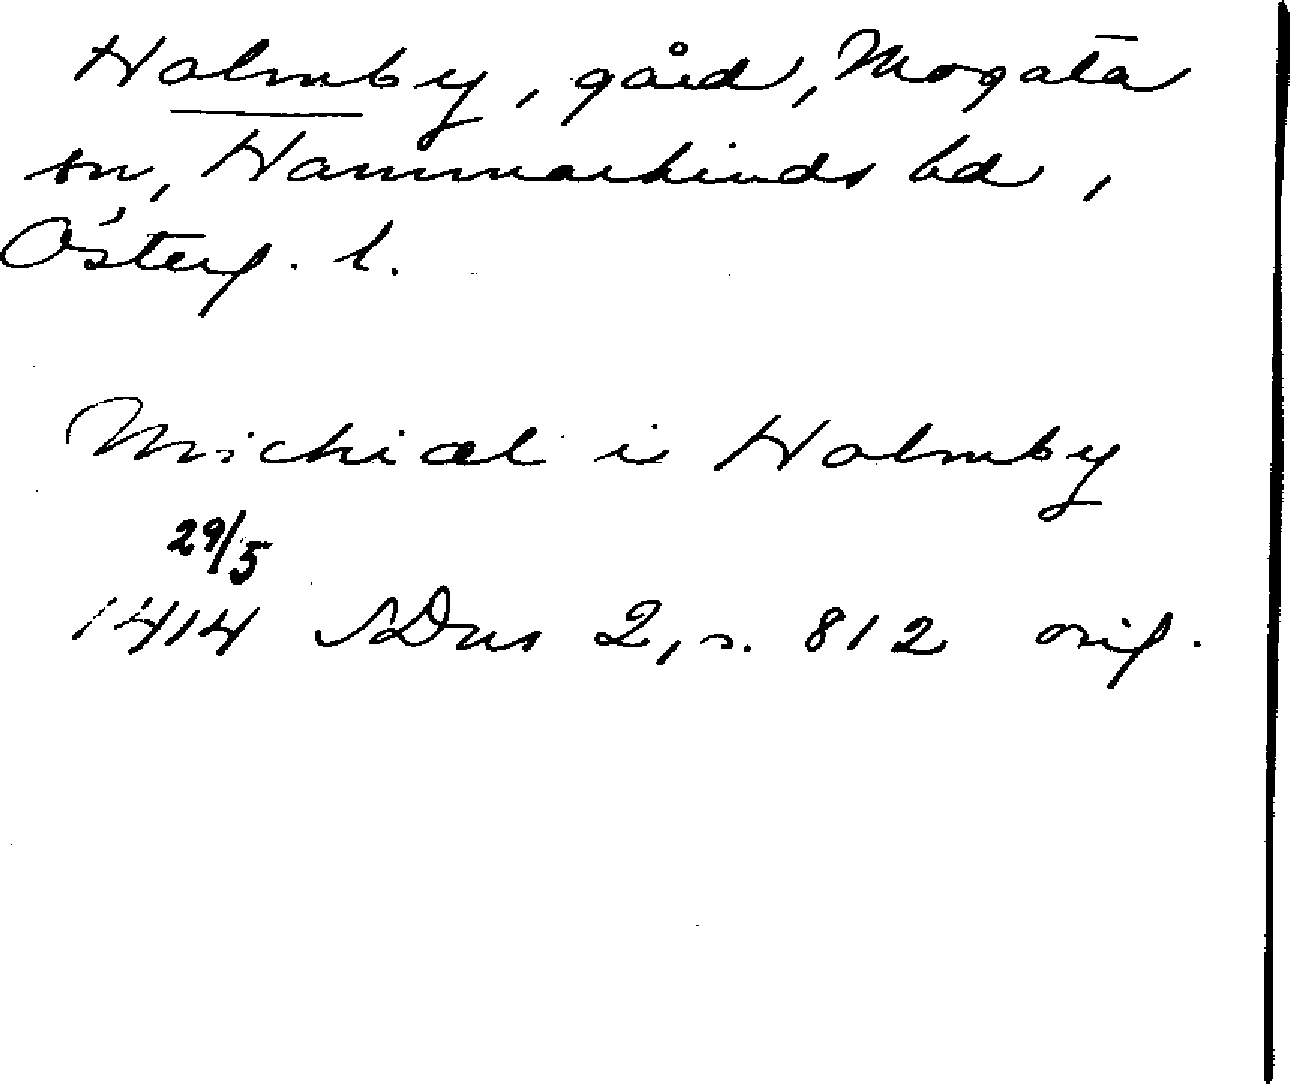 Holmby, gård, Mogata
sn, Hammarkinds hd,
Österg. l.
Michiæl i Holmby
29/5
1414 SDns 2, s. 812 orig.